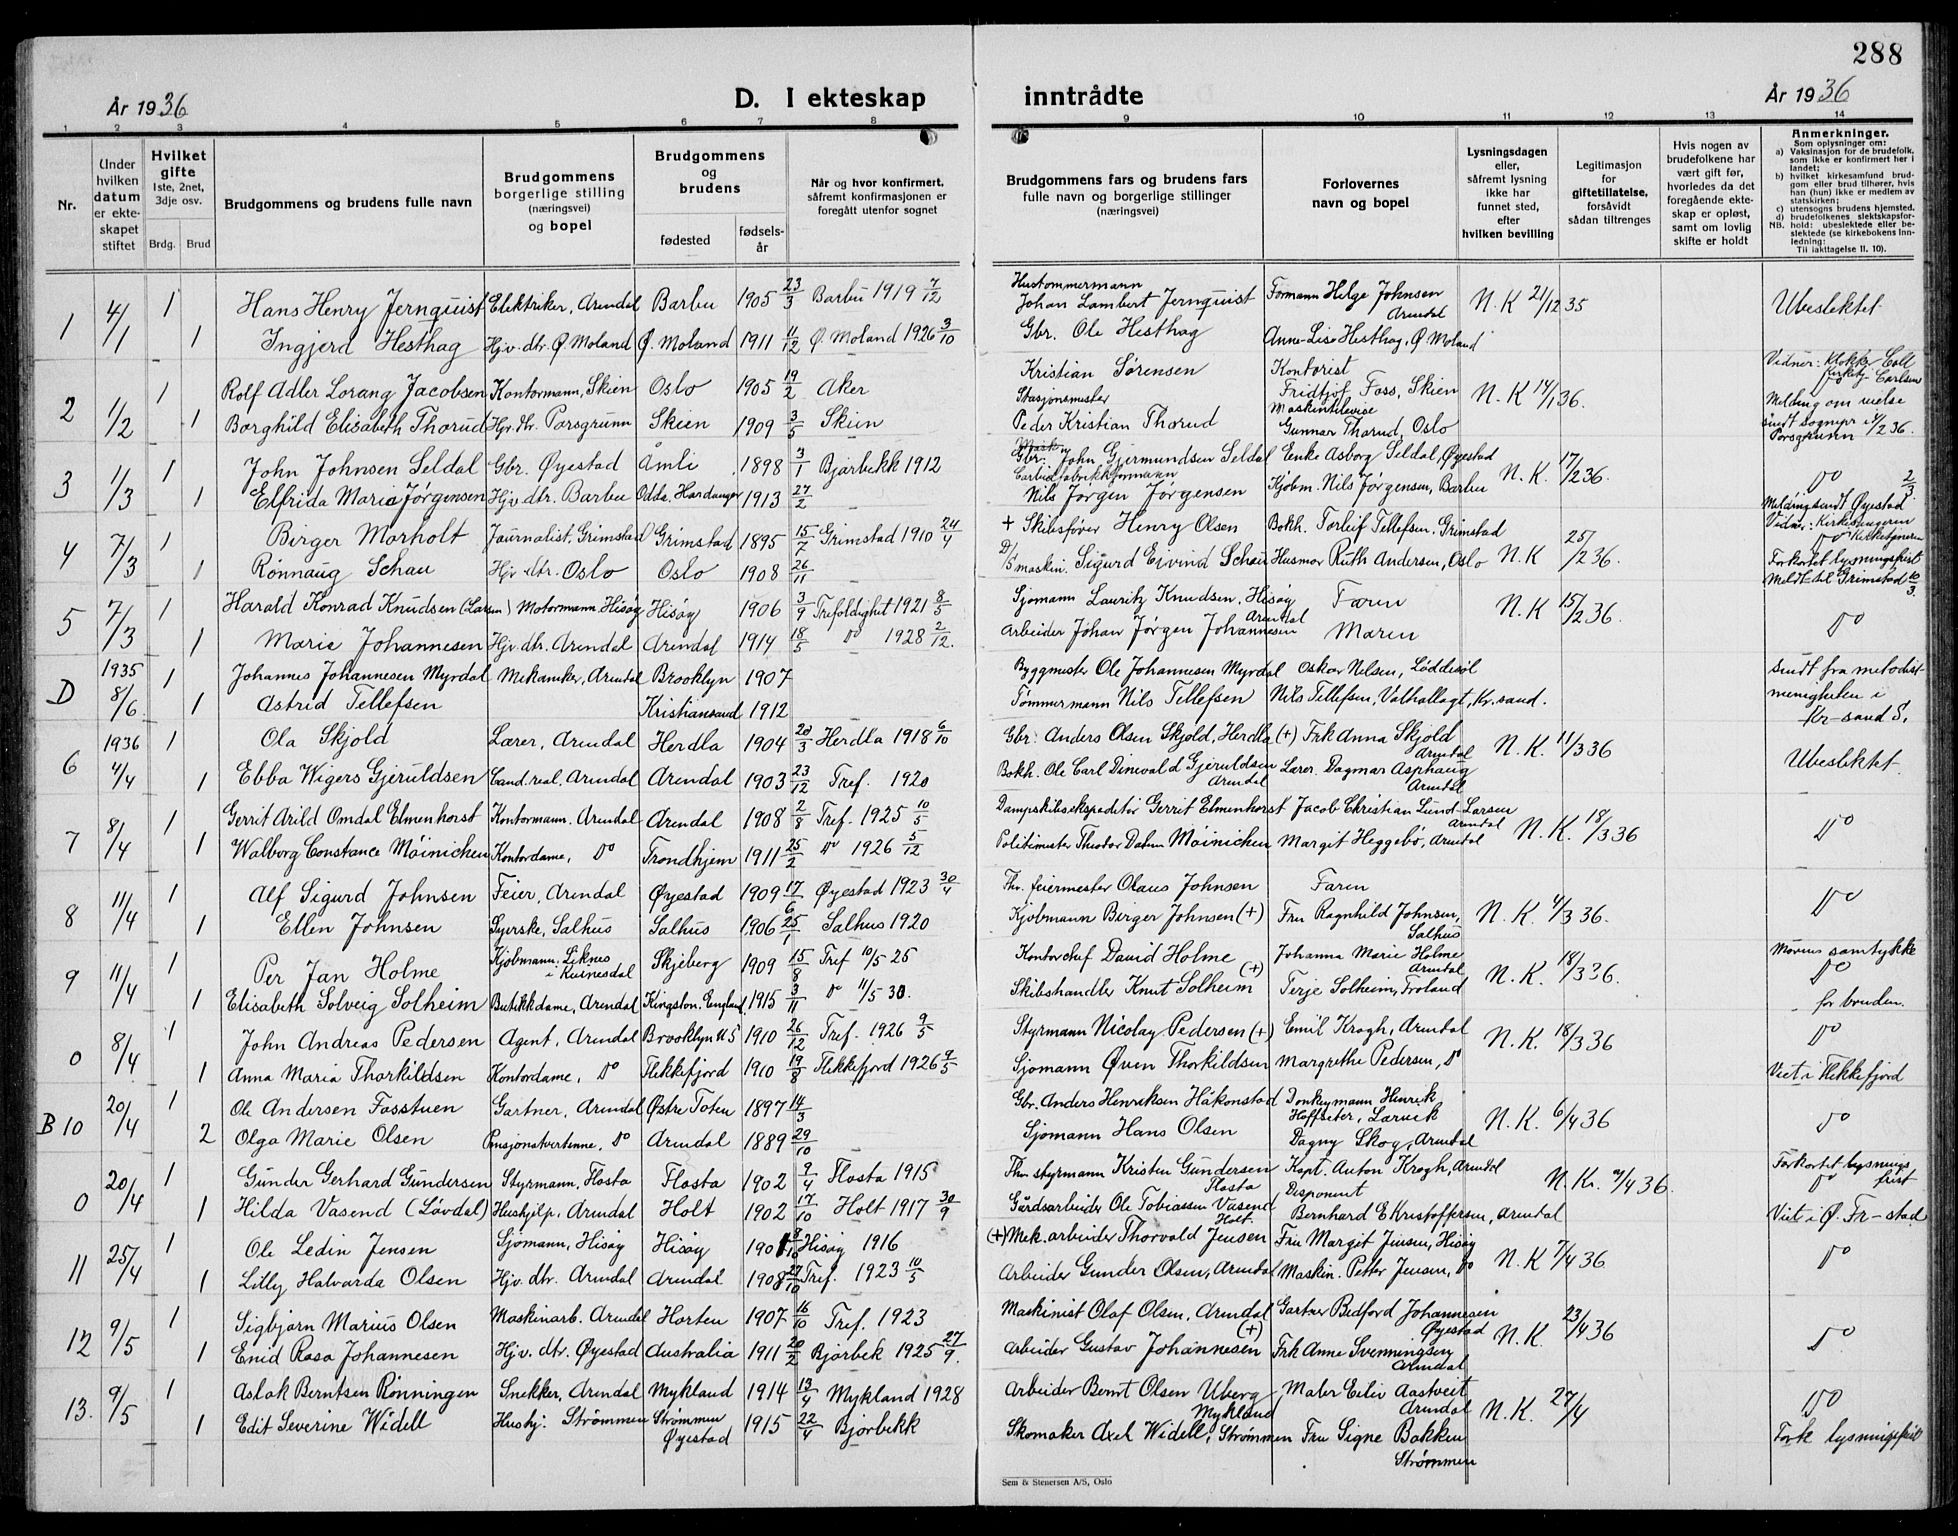 288
År 1936
D. I ekteskap inntrådte
År 1936
1 2 3 4 5 6 7 8 9 10 11 12 13 14
Nr.
Under hvilken datum er ekteskapet stiftet
Hvilket gifte 1ste, 2net, 3dje osv.
Brdg. Brud
Brudgommens og brudens fulle navn
Brudgommens borgerlige stilling (næringsvei) og bopel
Brudgommens og brudens
fødested
fødselsår
Når og hvor konfirmert, såfremt konfirmasjonen er foregått utenfor sognet
Brudgommens fars og brudens fars fulle navn og borgerlige stillinger (næringsvei)
Forlovernes navn og bopel
Lysningsdagen eller, såfremt lysning ikke har funnet sted, efter hvilken bevilling
Legitimasjon for giftetillatelse, forsåvidt sådan tiltrenges
Hvis nogen av brudefolkene har vært gift før, hvorledes da det foregående ekteskap er opløst, samt om lovlig skifte er holdt
Anmerkninger.
Som oplysninger om:
a) Vaksinasjon for de brudefolk, som ikke er konfirmert her i landet;
b) hvilket kirkesamfund brudgom eller brud tilhører, hvis han (hun) ikke er medlem av statskirken;
c) utensogns brudens hjemsted.
d) brudefolkenes slektskapsforhold: ubeslektede eller beslektede (se kirkebokens Innledning:
NB. Til iakttagelse II. 10).
1 4/1 1 Hans Henry Jernquist Elektriker, Arendal Barbu 1905 23/3 Barbu 1919 7/12 Hustømmermann Johan Lambert Jernquist Formann Helge Johnsen Arendal N. K 21/12 35 Ubeslektet
1 Ingjerd Hesthag Hjv. dtr. Ø. Moland Ø. Moland 1911 11/12 Ø. Moland 1926 3/10 Gbr. Ole Hesthag Anne-Lise Hesthag, Ø Moland
2 1/2 1 Rolf Adler Lorang Jacobsen Kontormann, Skien Oslo 1905 19/2 Aker Kristian Sørensen Kontorist Fridtjof Foss, Skien N. K 17/1 36.
1 Borghild Elisabeth Thorud Hjv. dtr. Porsgrunn Skien 1909 3/5 Skien Stasjonsmester Peder Kristian Thorud Gunnar Thorud, Oslo Melding om vielse sendt sognepr. i Porsgrunn 4/2 36.
3 1/3 1 John Johnsen Seldal Gbr. Øyestad Åmli 1898 3/1 Bjorbekk 1912 Gbr. John Gjermundsen Seldal Enke Asborg Seldal, Øyestad N. K. 17/2 36. Do
1 Elfrida Marie Jørgensen Hjv. dtr. Barbu Odda, Hardanger 1913 27/2 – Carbidfabrikkformann Nils Jørgen Jørgensen Kjøbm. Nils Jørgensen, Barbu Melding sendt Øyestad 2/3.
4 7/3 1 Birger Morholt Journalist, Grimstad Grimstad 1895 15/7 Grimstad 1910 24/4 + Skibsfører Henry Olsen Bokh. Torleif Tellefsen, Grimstad N. K 25/2 36.
1 Rønnaug Schau Hjv. dtr. Oslo Oslo 1908 26/11 – maskin. Sigurd Eivind Schau Husmor Ruth Andersen, Oslo Forkortet lysningsfrist Meldt til Grimstad 10/3.
5 7/3 1 Harald Konrad Knudsen (Larsen) Motormann, Hisøy Hisøy 1906 3/9 Trefoldighet 1921 8/5 Sjømann Lauritz Knudsen, Hisøy Faren N. K 15/2 36. Do
1 Marie Johannesen Hjv. dtr. Arendal Arendal 1914 18/5 Do 1928 2/12. Arbeider Johan Jørgen Johannesen Arendal Moren
D 1935 8/6 1 Johannes Johannesen Myrdal Mekaniker, Arendal Brooklyn 1907 Byggmester Ole Johannesen Myrdal Oskar Nilsen, Løddesøl Sendt fra metodistmenigheten i Kr-sand S.
1 Astrid Tellefsen Kristiansand 1912 Tømmermann Nils Tellefsen Nils Tellefsen, Valhallagt, Kr. sand.
6 1936 4/4 1 Ola Skjold Lærer, Arendal Herdla 1904 20/3 Herdla 1918 6/10 Gbr. Anders Olsen Skjold, Herdla (+) Frk Anna Skjold Arendal N. K. 11/3 36 Ubeslektet
1 Ebba Wigers Gjeruldsen Cand. real. Arendal Arendal 1903 23/12 Tref. 1920 Bokh. Ole Carl Dinevald Gjeruldsen Arendal Lærer. Dagmar Asphaug Arendal
7 8/4 1 Gerrit Arild Omdal Elmenhorst Kontormann. Arendal Arendal 1908 2/8 Tref. 1925 10/5 Dampskibsekspeditør Gerrit Elmenhorst Jacob Christian Lund-Larsen Arendal N. K. 18/3 36 Do
1 Walborg Constance Møinichen Kontordame, Do Trondhjem 1911 25/2 Do 1926 5/12 Politimester Theodor Dahm Møinichen Margit Heggebø, Arendal
8 11/4 1 Alf Sigurd Johnsen Feier, Arendal Øyestad 1909 17/6 Øyestad 1923 30/4 Fhv. feiermester Olaus Johnsen Faren N. K. 4/3 36. Do
1 Ellen Johnsen Syerske, Salhus Salhus 1906 25/1 Salhus 1920 Kjøbmann Birger Johnsen (+) Fru Ragnhild Johnsen, Salhus
9 11/4 1 Per Jan Holme Kjøbmann. Liknes i Kvinesdal Skjeberg 1909 15/8 Tref 10/5 25 Kontorchef David Holme Johanna Marie Holme Arendal N. K. 18/3 36. Morens samtykke Do
1 Elisabeth Solveig Solheim Butikkdame, Arendal Kingston. England 1915 3/11 Do 11/5 30. Skibshandler Knut Solheim (+) Terje Solheim, Froland for bruden.
0 8/4 1 John Andreas Pedersen Agent, Arendal Brooklyn US 1910 26/12 Tref. 1926 9/5 Styrmann Nicolay Pedersen (+) Emil Krogh, Arendal N. K. 18/3 36 Do
1 Anna Maria Thorkildsen Kontordame, Do Flekkefjord 1910 19/8 Flekkefjord 1926 9/5 Sjømann Øven Thorkildsen Margrethe Pedersen, Do Viet i Flekkefjord
B 10 20/4 1 Ole Andersen Fosstuen Gartner, Arendal Østre Toten 1897 14/3 – Gbr. Anders Henriksen Håkonstad Donkeymann Henrik Hoffseter, Larvik N. K. 6/4 36 Do
2 Olga Marie Olsen Pensjonatvertinne, Do Arendal 1889 29/10 – Sjømann Hans Olsen Dagny Skog, Arendal
0 20/4 1 Gunder Gerhard Gundersen Styrmann, Flosta Flosta 1902 9/4 Flosta 1915 Fhv. styrmann Kristen Gundersen Flosta Kapt. Anton Krogh, Arendal N. K. 2/4 36. Forkortet lysningsfrist Do
1 Hilda Vasend (Løvdal) Hushjelp, Arendal Holt 1902 17/10 Holt 1917 30/9 Gårdsarbeider Ole Tobiassen Vasend Holt. Disponent Bernhard E Kristoffersen, Arendal Viet i Ø. Fr-stad
11 25/4 1 Ole Ledin Jensen Sjømann, Hisøy Hisøy 1901 Hisøy 1916 (+) Mek. arbeider Thorvald Jensen Fru Margit Jensen, Hisøy N. K 7/4 36 Do
1 Lilly Halvarda Olsen Hjv. dtr. Arendal Arendal 1908 27/10 Tref. 1923 10/5 Arbeider Gunder Olsen, Arendal Maskin. Petter Jensen, Do
12 9/5 1 Sigbjørn Marius Olsen Maskinarb. Arendal Horten 1907 16/10 Tref. 1923 Maskinist Olaf Olsen, Arendal Gartner Bedford Johannesen Øyestad N. K. 23/4 36 Do
1 Enid Rosa Johannesen Hjv. dtr. Øyestad Australia 1911 20/2 Bjorbek 1925 27/9. Arbeider Gustav Johannesen (+) Frk Anne Svenningsen Arendal
13. 9/5 1 Aslak Berntsen Rønningen Snekker, Arendal Mykland 1914 13/4 Mykland 1928 Arbeider Bernt Olsen Uberg Mykland Maler Eiliv Aastveit Arendal N. K. 27/4 Do
1 Edit Severine Widell Hushj. Strømmen Strømmen Øyestad 1915 22/4 Bjorbekk Skomaker Axel Widell, Strømmen Fru Signe Bakken Strømmen Fork lysningsfrist
Sem & Stenersen A/S, Oslo